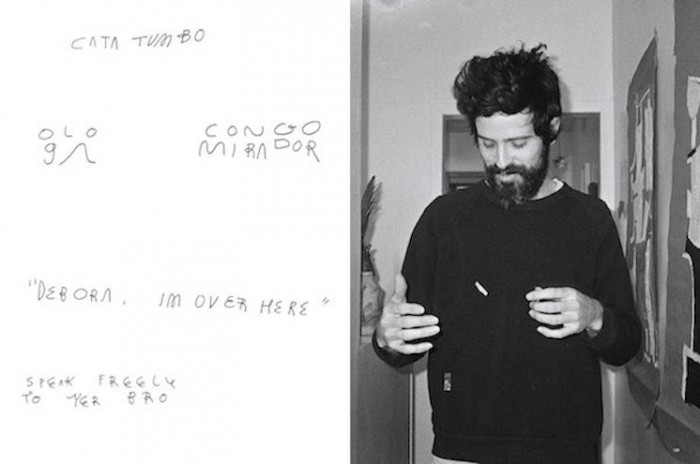 CATA TUMBO
OLO
CONGO
MIRADOR
"DEBORA, IM OVER HERE"
SPEAK FREELY
TO YER BRO